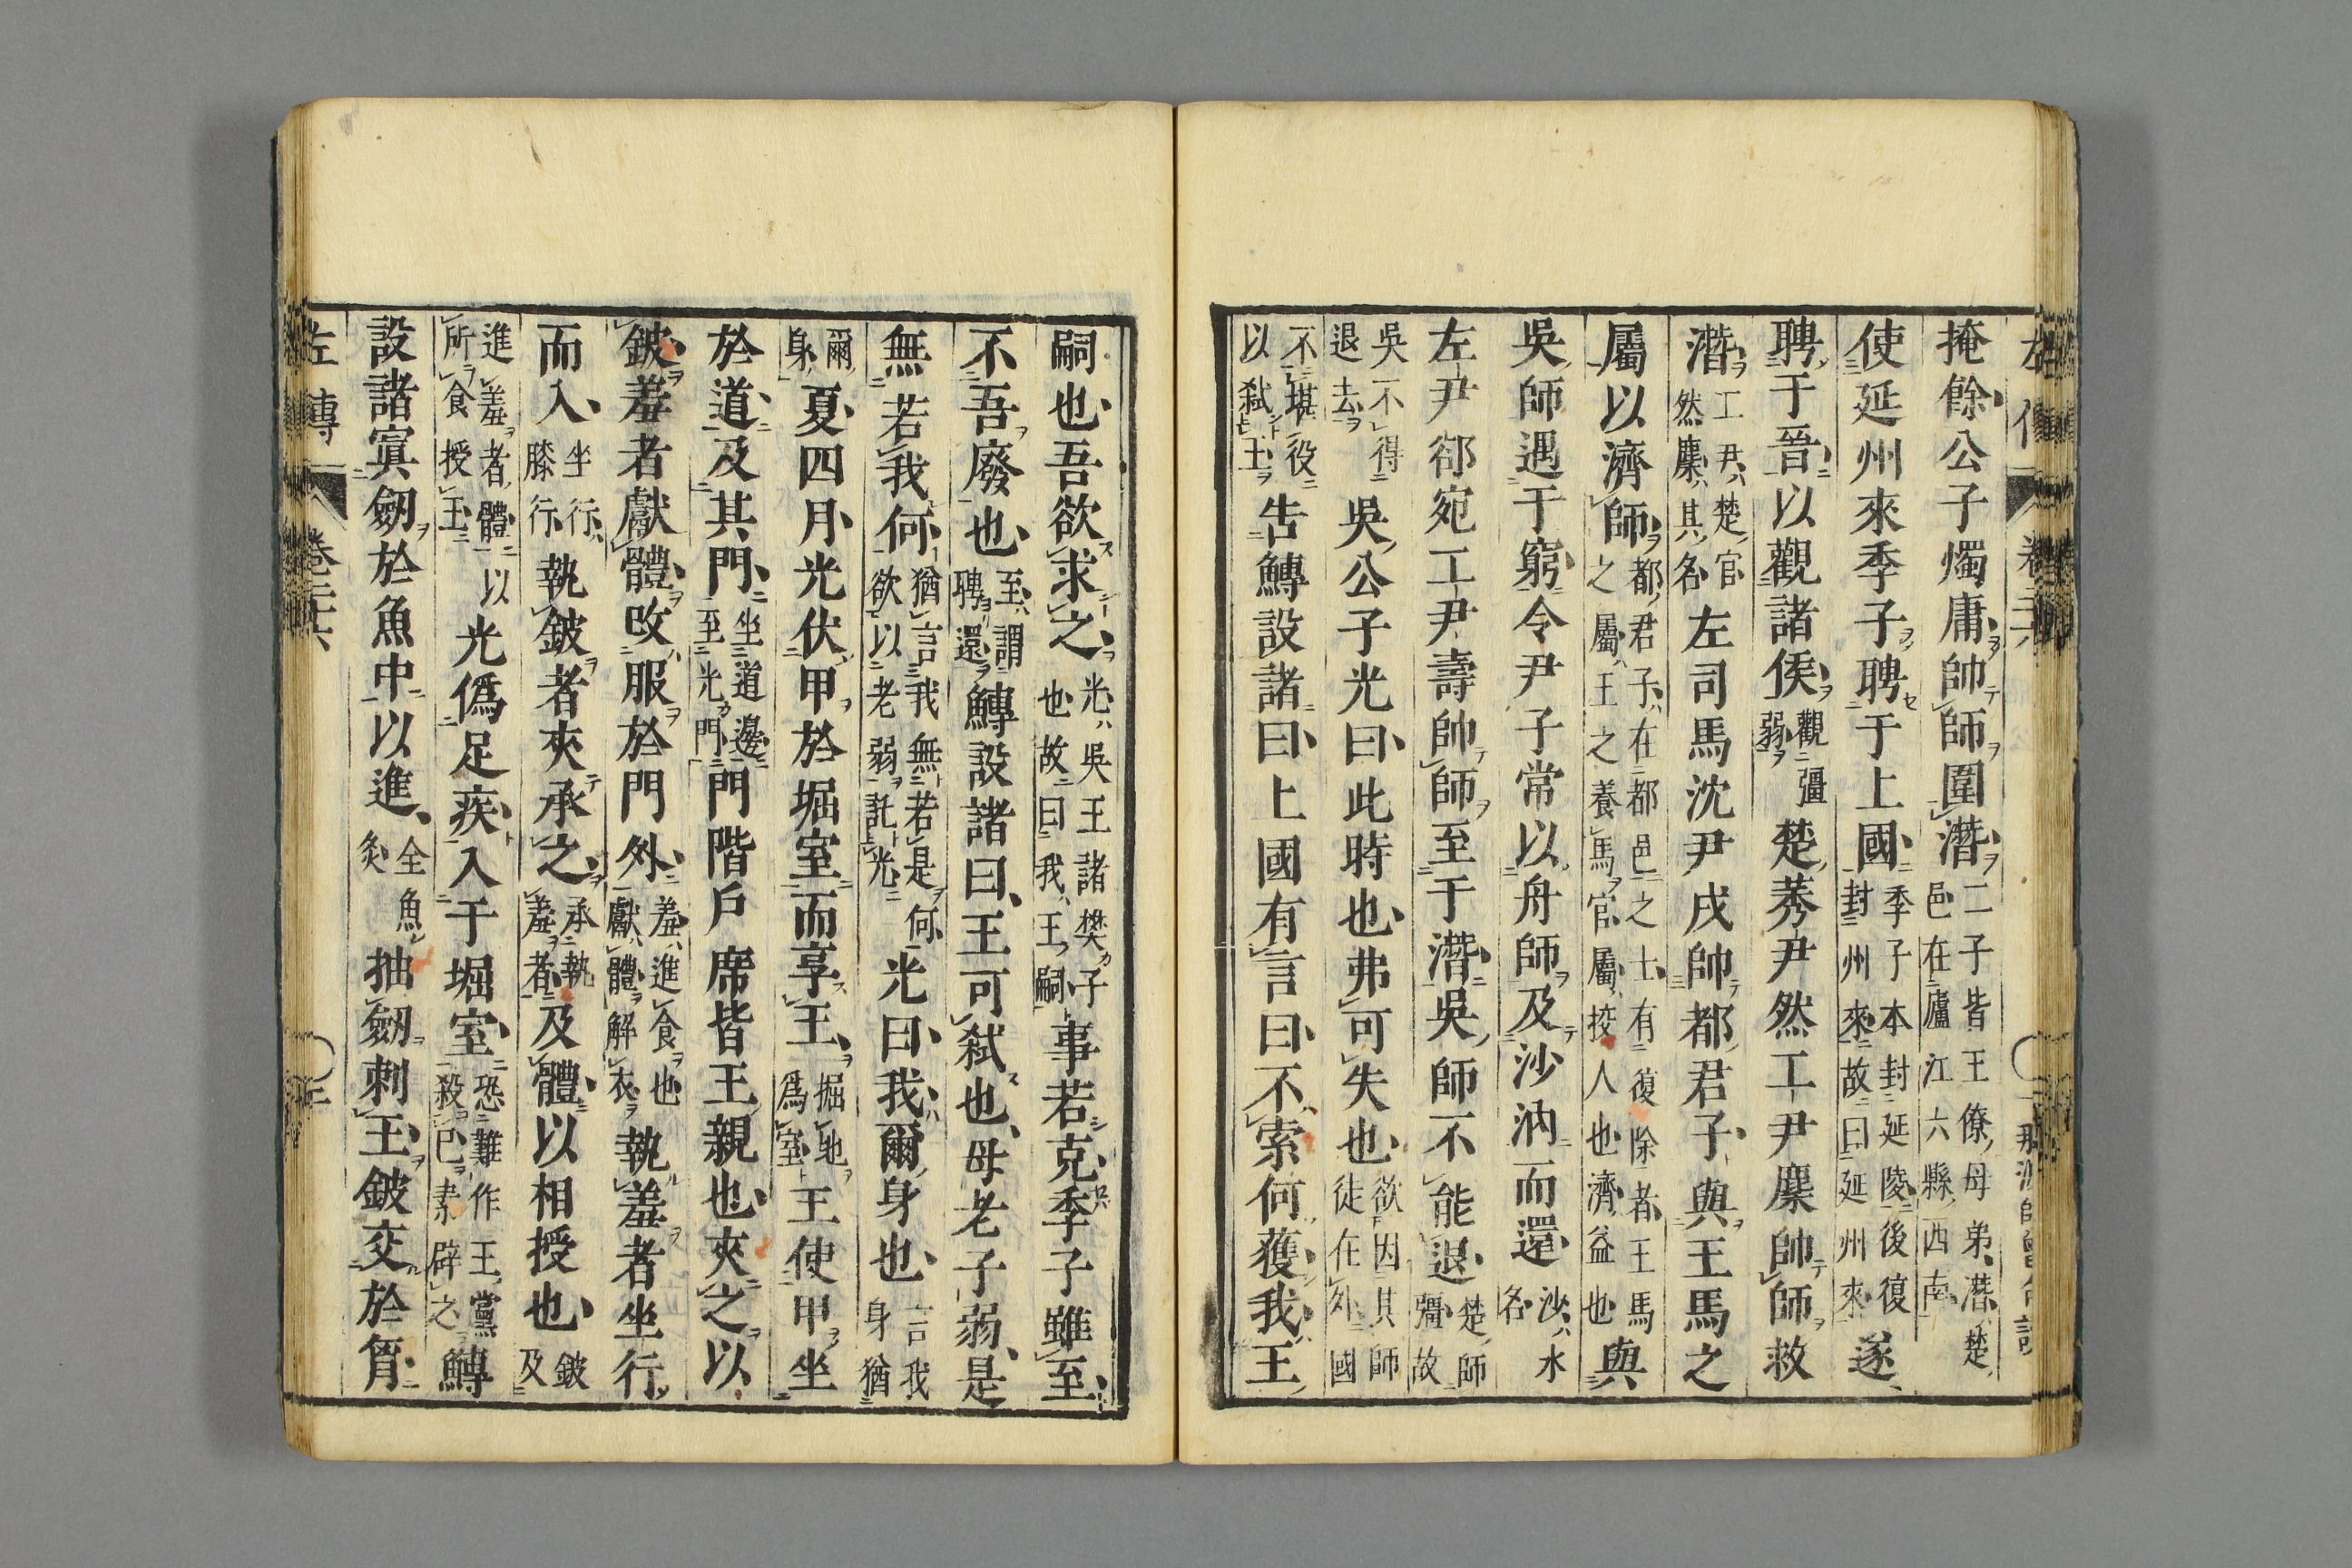 掩餘公子燭庸帥師圍潛二子皆王僚母弟潛楚邑在廬江六縣西南
使延州來季子聘于上國季子本封延陵後復封州來故曰延州來遂
聘于晉以觀諸侯觀彊弱楚莠尹然工尹麇帥師救
潛工尹楚官然麇其名左司馬沈尹戌帥都君子與王馬之
屬以濟師都君子在都邑之士有復除者王馬之屬王之養馬官屬挍人也濟益也與
吳師遇于窮令尹子常以舟師及沙汭而還沙水名
左尹郤宛工尹壽帥師至于潛吳師不能退楚師彊故
吳不得退去吳公子光曰此時也弗可失也欲因其師徒在外國
不堪役以弒王告鱄設諸曰上國有言曰不索何獲我王
嗣也吾欲求之光吳王諸樊子也故曰我王嗣事若克季子雖至
不吾廢也至謂聘還鱄設諸曰王可弒也母老子弱是
無若我何猶言我無若是何欲以老弱託光光曰我爾身也言我身猶
爾身夏四月光伏甲於堀室而享王掘地為室王使甲坐
於道及其門坐道邊至光門門階戶席皆王親也夾之以
鈹羞者獻體改服於門外羞進食也獻體解衣執羞者坐行
而入坐行膝行執鈹者夾承之承執羞者及體以相授也鈹及
進羞者體以所食授王光偽足疾入于堀室恐難作王黨殺己素辟之鱄
設諸寘劒於魚中以進全魚炙抽劒刺王鈹交於胷
左傳 卷二十六